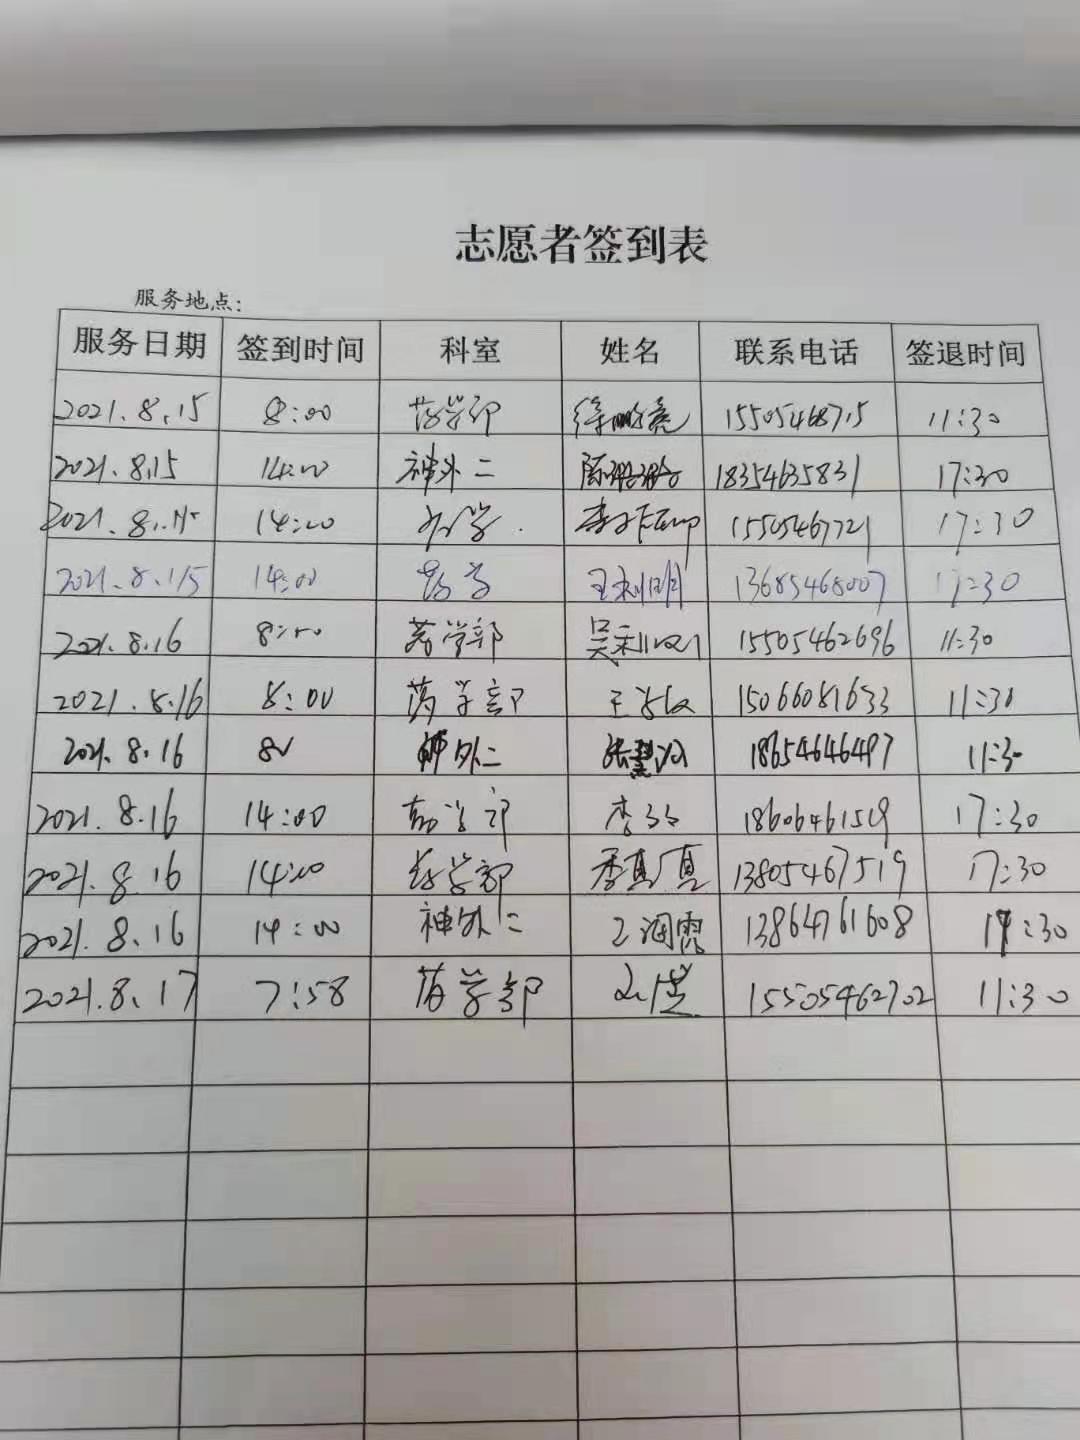 志愿者签到表
服务地点:
服务日期 签到时间 科室 姓名 联系电话 签退时间
2021.8.15 8:00 药学部 徐鹏亮 15505468715 11:30
2021.8.15 14:00 神外二 陈 18354635831 17:30
2021.8.15 14:00 药学. 李 15505467721 17:30
2021.8.15 14:00 药学 王利明 13685468007 17:30
2021.8.16 8:00 药学部 吴利 15505462696 11:30
2021.8.16 8:00 药学部 王 15066081633 11:30
2021.8.16 8 神外二 张慧 18654646497 11:30
2021.8.16 14:00 药学部 李 18606461519 17:30
2021.8.16 14:00 药学部 季真真 13805467519 17:30
2021.8.16 14:00 神外二 王润霞 13864761608 17:30
2021.8.17 7:58 药学部 15505462702 11:30